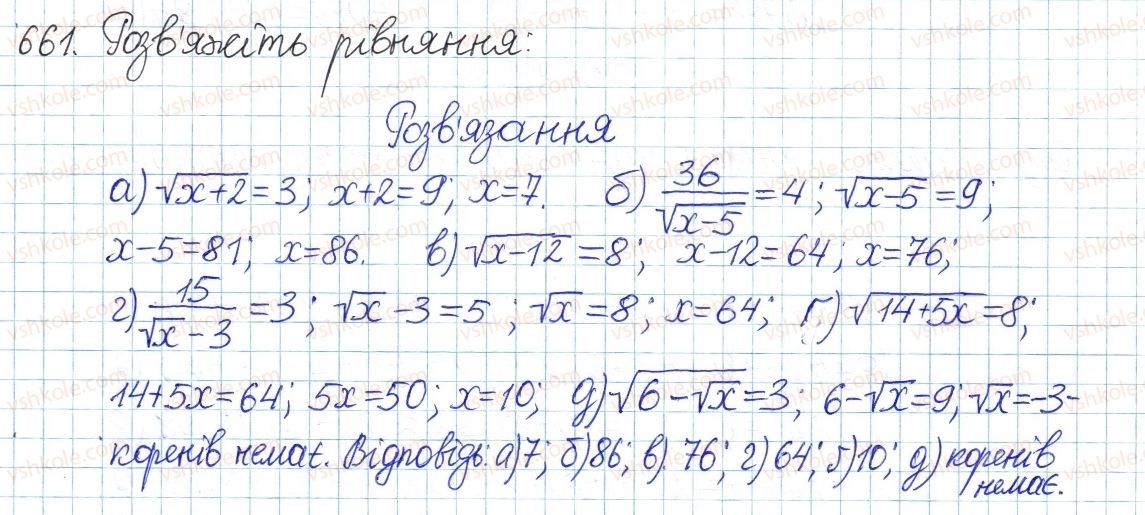 661. Розв'яжіть рівняння:
Розв'язання
а) √(x+2) = 3; x+2=9; x=7. б) 36/√(x-5) = 4; √(x-5) = 9;
x-5=81; x=86. в) √(x-12) = 8; x-12=64; x=76;
г) 15/(√x-3) = 3; √x-3=5; √x=8; x=64; ґ) √(14+5x) = 8;
14+5x=64; 5x=50; x=10; д) √(6-√x) = 3; 6-√x=9; √x=-3-
коренів немає. Відповідь: а) 7; б) 86; в) 76; г) 64; ґ) 10; д) коренів
немає.